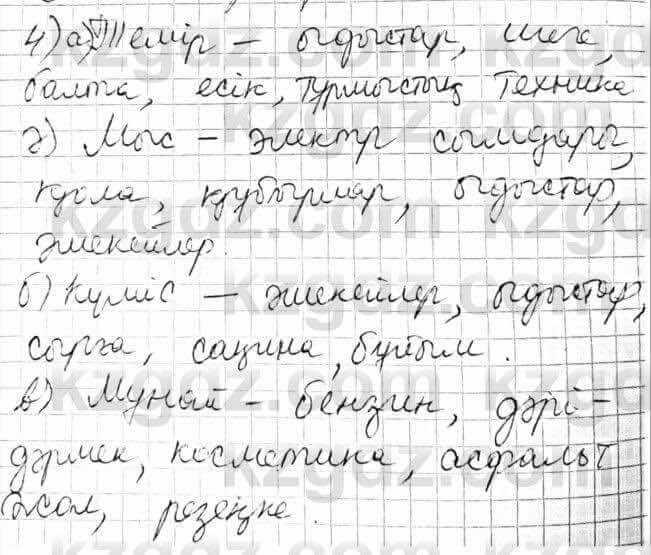 4) а) Темір – ыдыстар, шеге,
балта, есік, тұрмыстық техника
ә) Мыс – электр сымдары,
қола, құбырлар, ыдыстар,
әшекейлер.
б) Күміс – әшекейлер, ыдыстар,
сырға, сақина, бұйым.
в) Мұнай – бензин, дәрі-
дәрмек, косметика, асфальт
жол, резеңке.